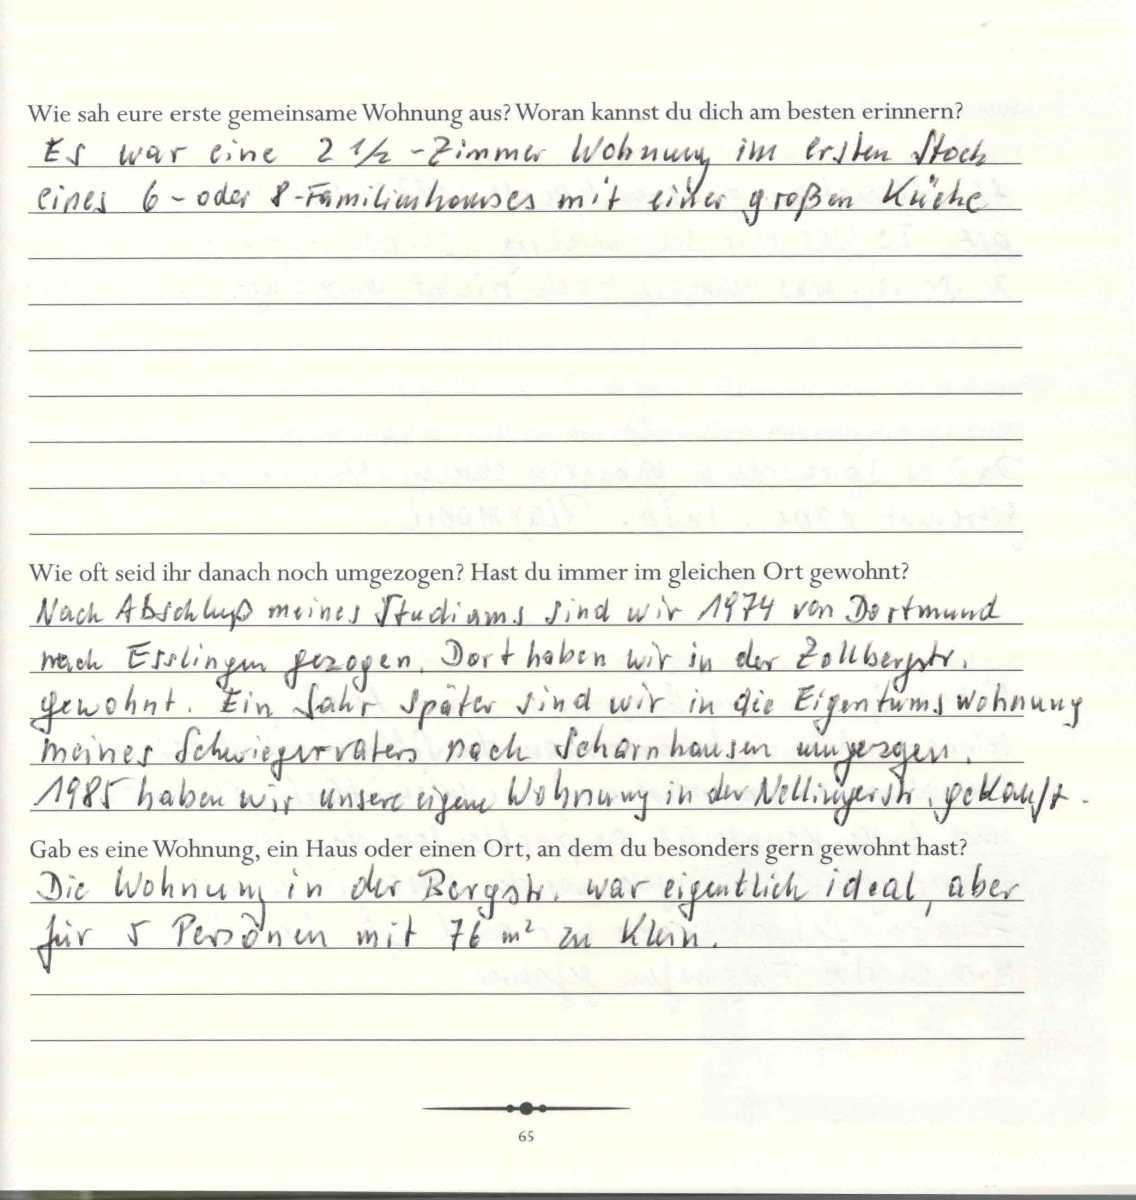 Wie sah eure erste gemeinsame Wohnung aus? Woran kannst du dich am besten erinnern?
Es war eine 2 1/2 - Zimmer Wohnung im ersten Stock
eines 6 - oder 8 - Familienhauses mit einer großen Küche
Wie oft seid ihr danach noch umgezogen? Hast du immer im gleichen Ort gewohnt?
Nach Abschluß meines Studiums sind wir 1974 von Dortmund
nach Esslingen gezogen. Dort haben wir in der Zollbergstr.
gewohnt. Ein Jahr später sind wir in die Eigentumswohnung
meines Schwiegervaters nach Scharnhausen umgezogen.
1985 haben wir unsere eigene Wohnung in der Nellingerstr. gekauft.
Gab es eine Wohnung, ein Haus oder einen Ort, an dem du besonders gern gewohnt hast?
Die Wohnung in der Bergstr. war eigentlich ideal, aber
für 5 Personen mit 76 m² zu klein.
65